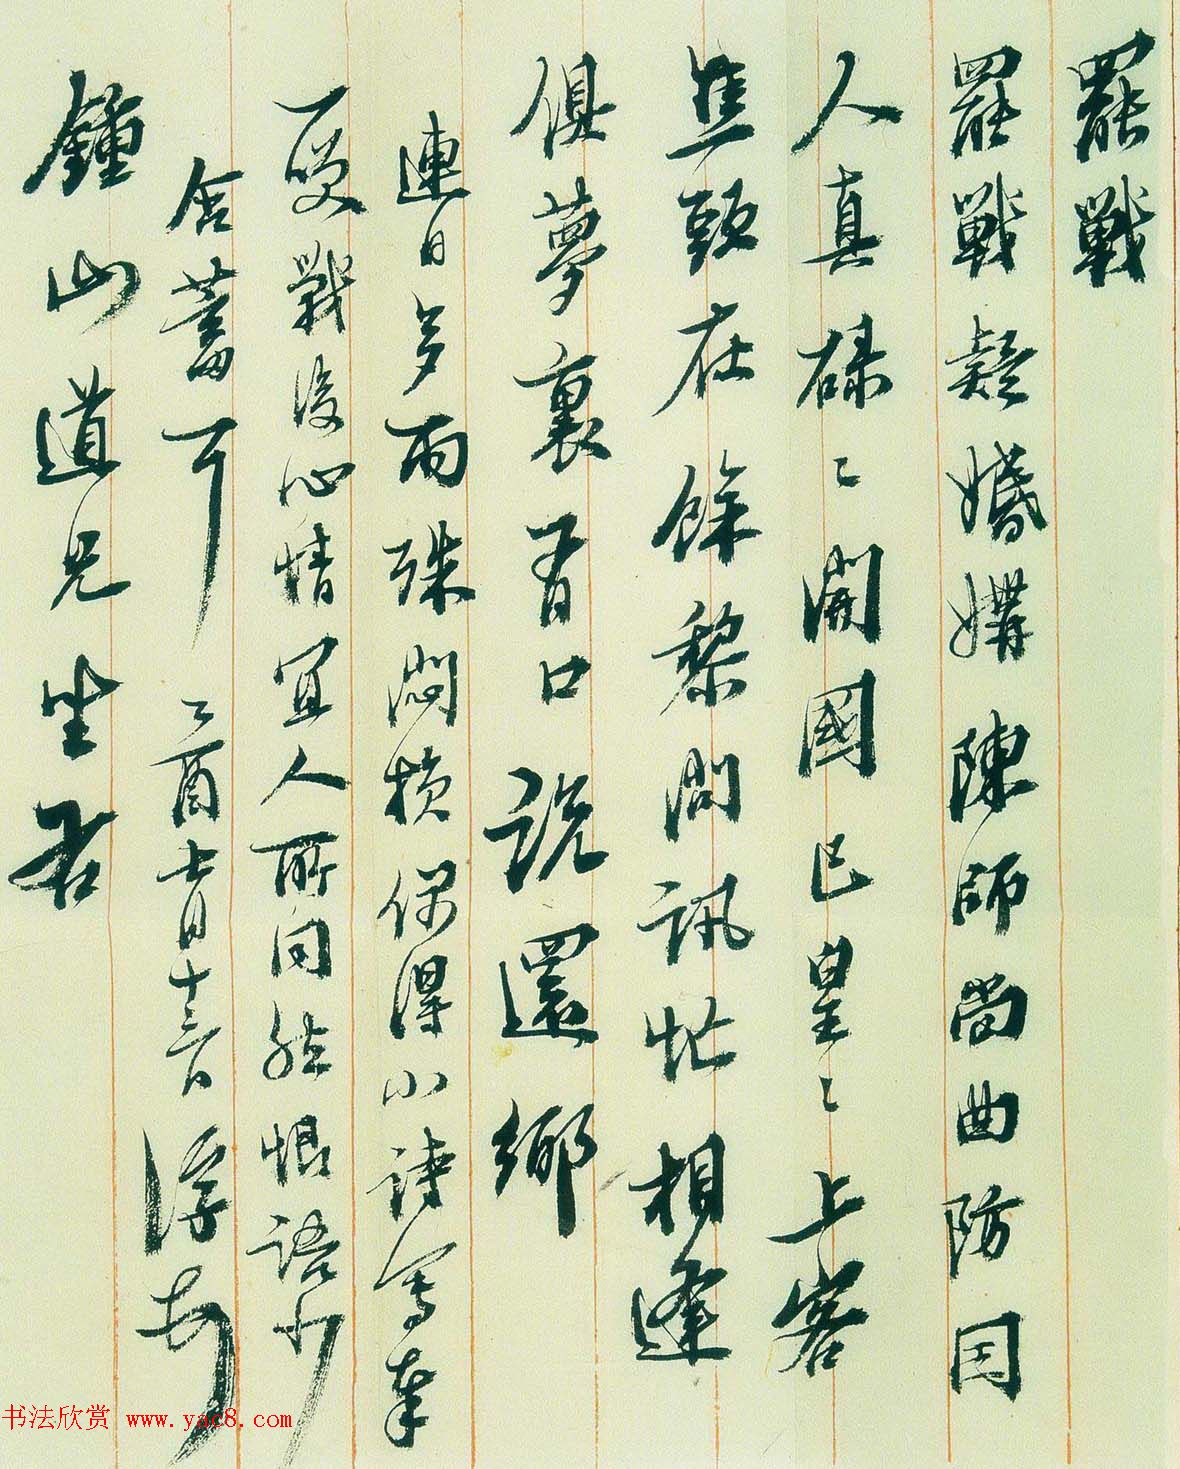 罷戰
罷戰疑婚媾陳師尚曲防因
人真碌々開國已皇々上客
焦頭在餘黎問訊忙相逢
俱夢裏百口說還鄉
連日多雨殊悶損偶得小詩寫奉
一咲戰後心情宜人所同然恨語少
含蓄耳 乙酉七月十三日
鍾山道兄坐右
书法欣赏 www.yac8.com